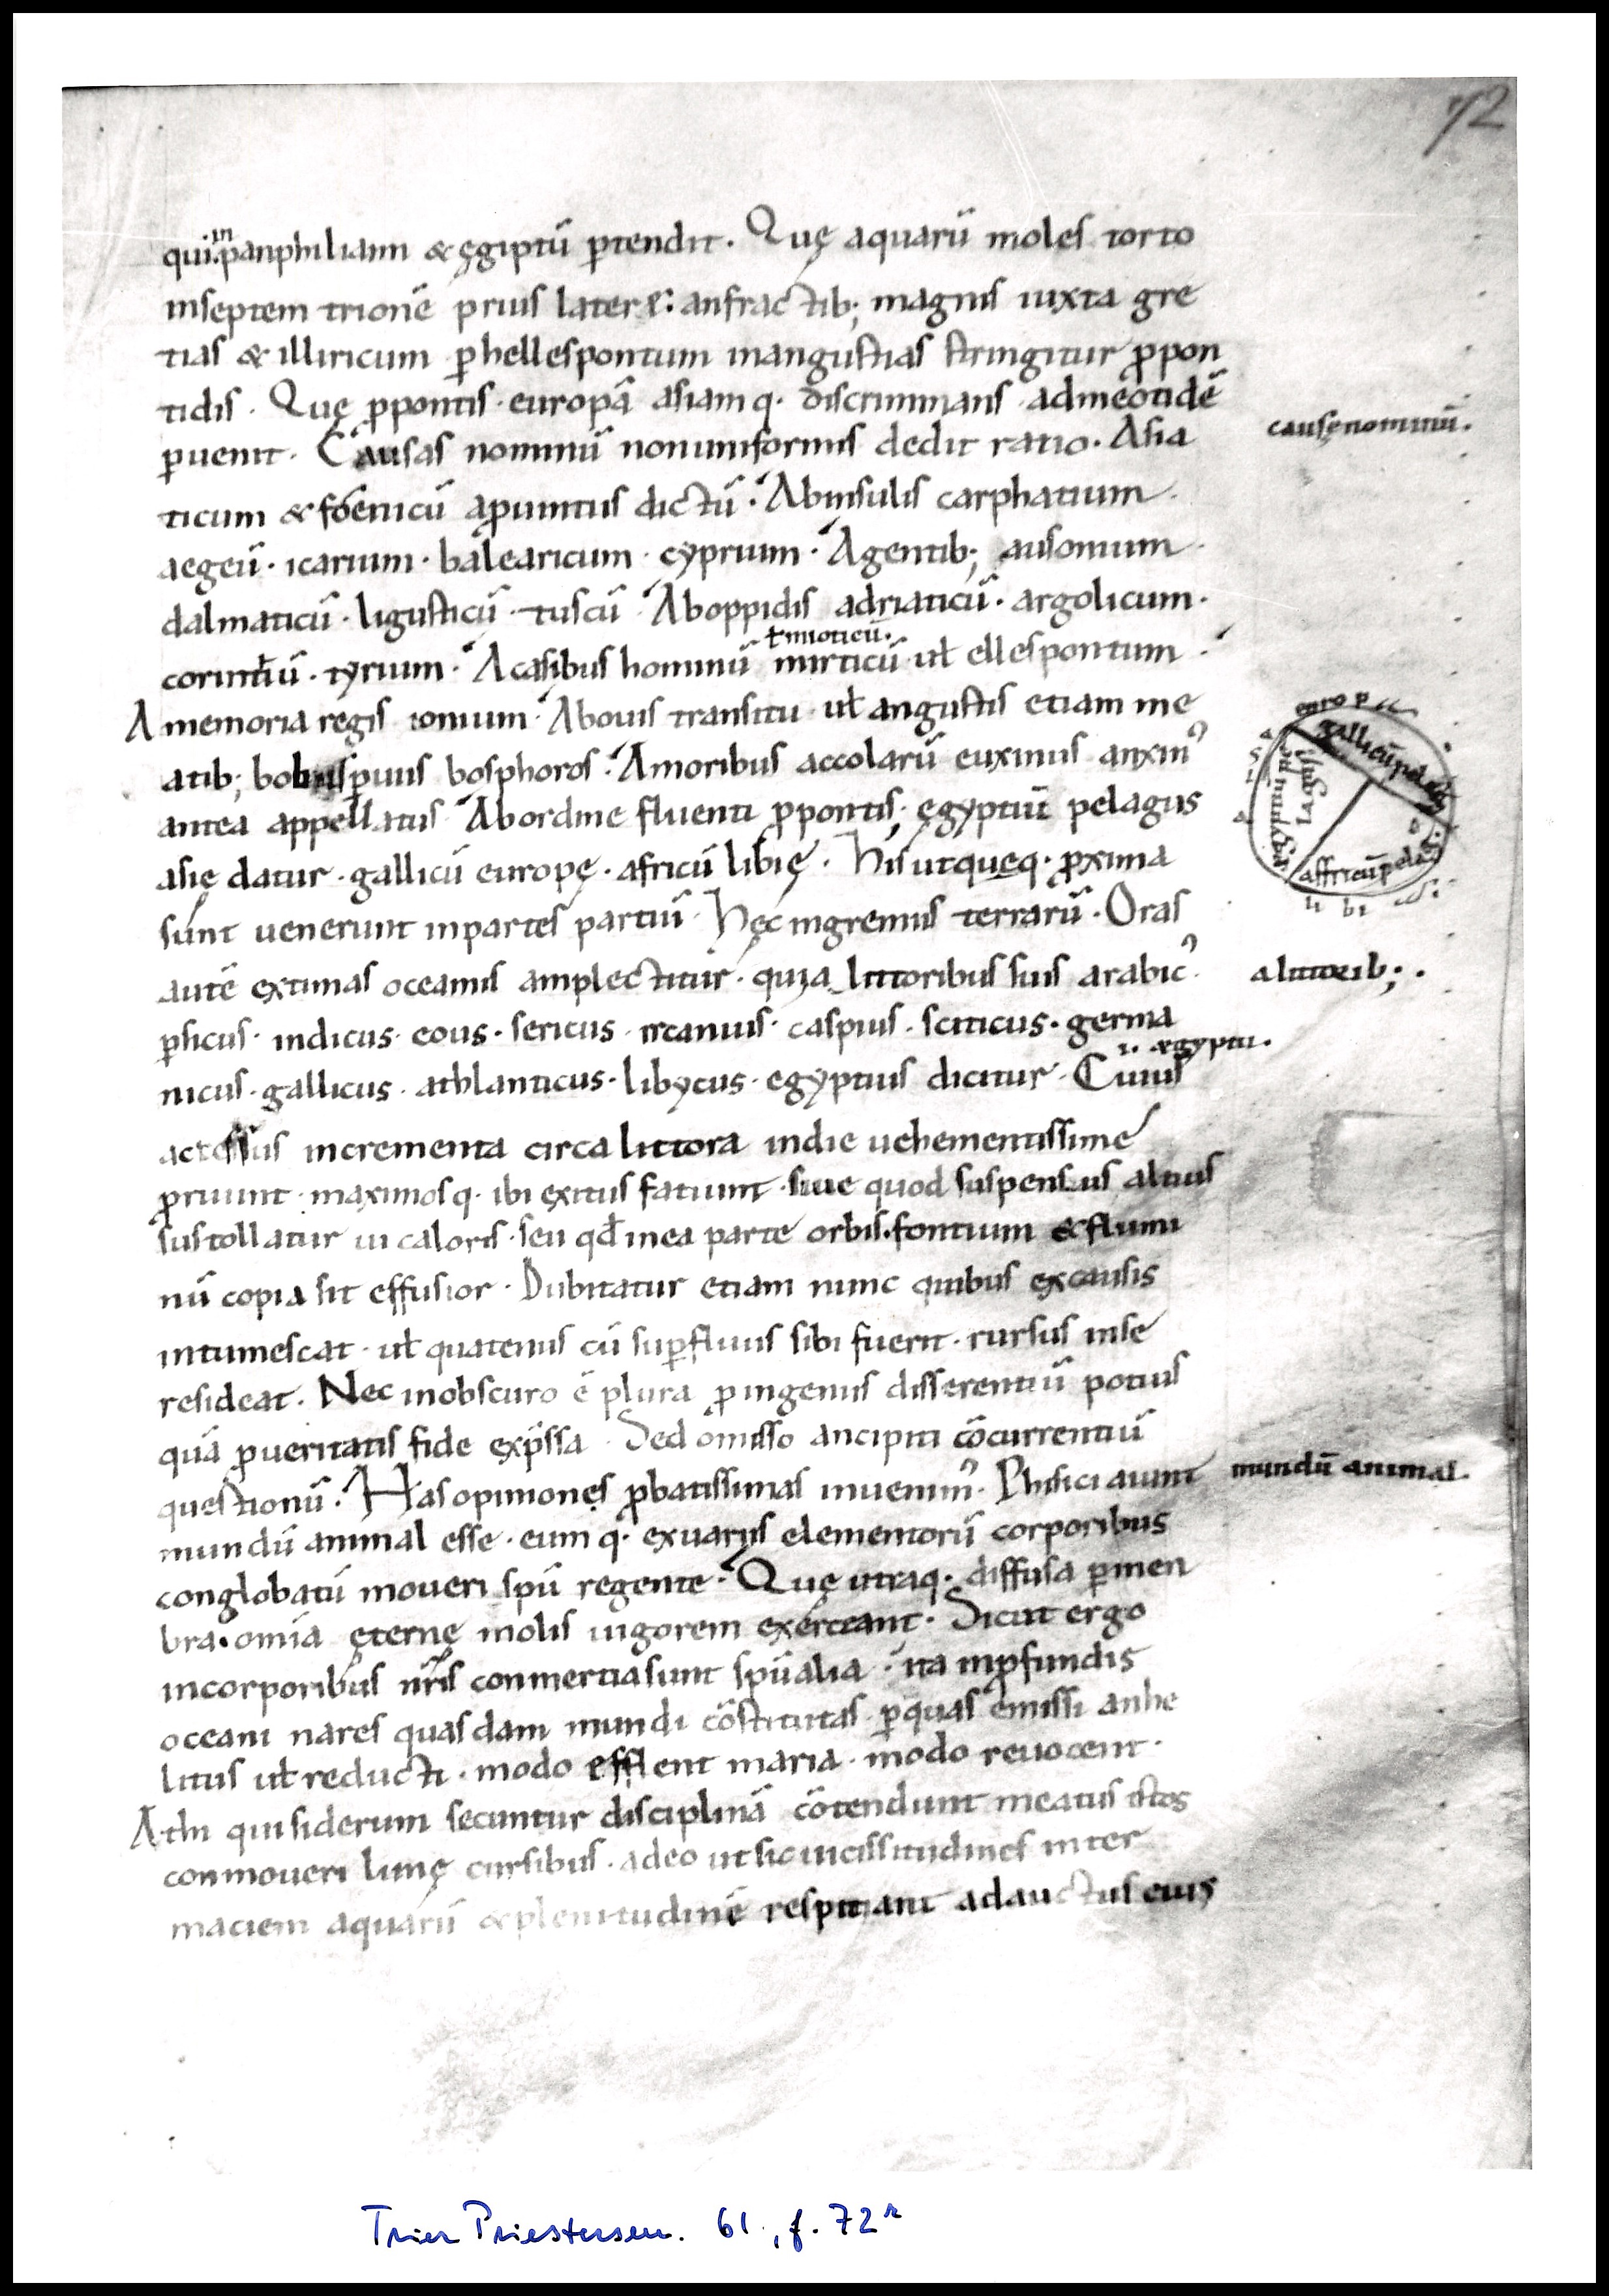 72
qui panphiliam & ęgiptū ꝑtendit. Quę aquarū moles torto
in
inseptem trionē prius latere: anfractib; magnis iuxta gre
tias & illiricum ꝑhellespontum inangustias stringitur ꝓpon
tidis. Quę ꝓpontis· europā asiamq· discriminans admeotidē
ꝑuenit. Causas nominū nonuniformis dedit ratio. Asia
causęnominū.
ticum & foenicū aꝓuintiis dictū. Abinsulis carphatium.
aegeū· icarium· balearicum· cyprium. Agentib; ausonium·
dalmaticū· ligusticū· tuscū· Aboppidis adriaticū· argolicum·
corintħiū· tyrium. Acasibus hominū mirticū ut̵ ellespontum.
ł mioticū.
Amemoria regis ionium· Abouis transitu ut̵ angustis etiam me
atib; bobus ꝑuiis bosphoros. Amoribus accolarū euxinus anxinꝰ
antea appellatus· Abordine fluenti ꝓpontis· ęgyptiū pelagus
asię datur· gallicū europę· africū libię. his utquęq· ꝓxima
sunt uenerunt inpartes partiū. hęc ingremiis terrarū. Oras
autē extimas oceanus amplectitur· quia littoribus suis arabicꝰ·
a littorib;.
ꝑsicus· indicus· eous· sericus· ircanus· caspius· sciticus· germa
nicus· gallicus· athlanticus· libycus· egyptius dicitur. Cuius
.i. ęgyptii.
accessus incrementa circa littora indie uehementissime
ꝓruunt· maximosq· ibi exitus fatiunt· siue quod suspensus altius
sustollatur ui caloris· seu qđ inea parte orbis· fontium & flumi
nū copia sit effusior. Dubitatur etiam nunc quibus excausis
intumescat· ut̵ quatenus cū suꝑfluus sibi fuerit· rursus inse
resideat. Nec inobscuro ē plura ꝓ ingeniis disserentiū potius
quā ꝓueritatis fide exp̄ssa. Sed omisso ancipiti cōcurrentiū
questionū. Has opiniones ꝓbatissimas inuenimꝰ. Phisici aiunt
mundū animal.
mundū animal esse· eumq· exuariis elementorū corporibus
conglobatū moueri sp̄ū regente. Quę utraq· diffusa ꝑmen
bra· omīa ęternę molis uigorem exerceant. Sicut ergo
incorporibus nr̄is conmertia sunt sp̄ūalia· ita inꝓfundis
oceani nares quasdam mundi cōstitutas· ꝑquas emissi anhe
litus ut̵ reducti· modo efflent maria· modo reuocent.
At hi qui siderum secuntur disciplinā cōtendunt meatus istos
conmoueri lunę cursibus· adeo ut sic uicissitudines inter
maciem aquarū & plenitudinē respitiant ad auctus eius
europa
gallicū pelag
asia
ęgyptiū pela
gus
affricū pelag
libi
Trier Priestersem. 61, f. 72r